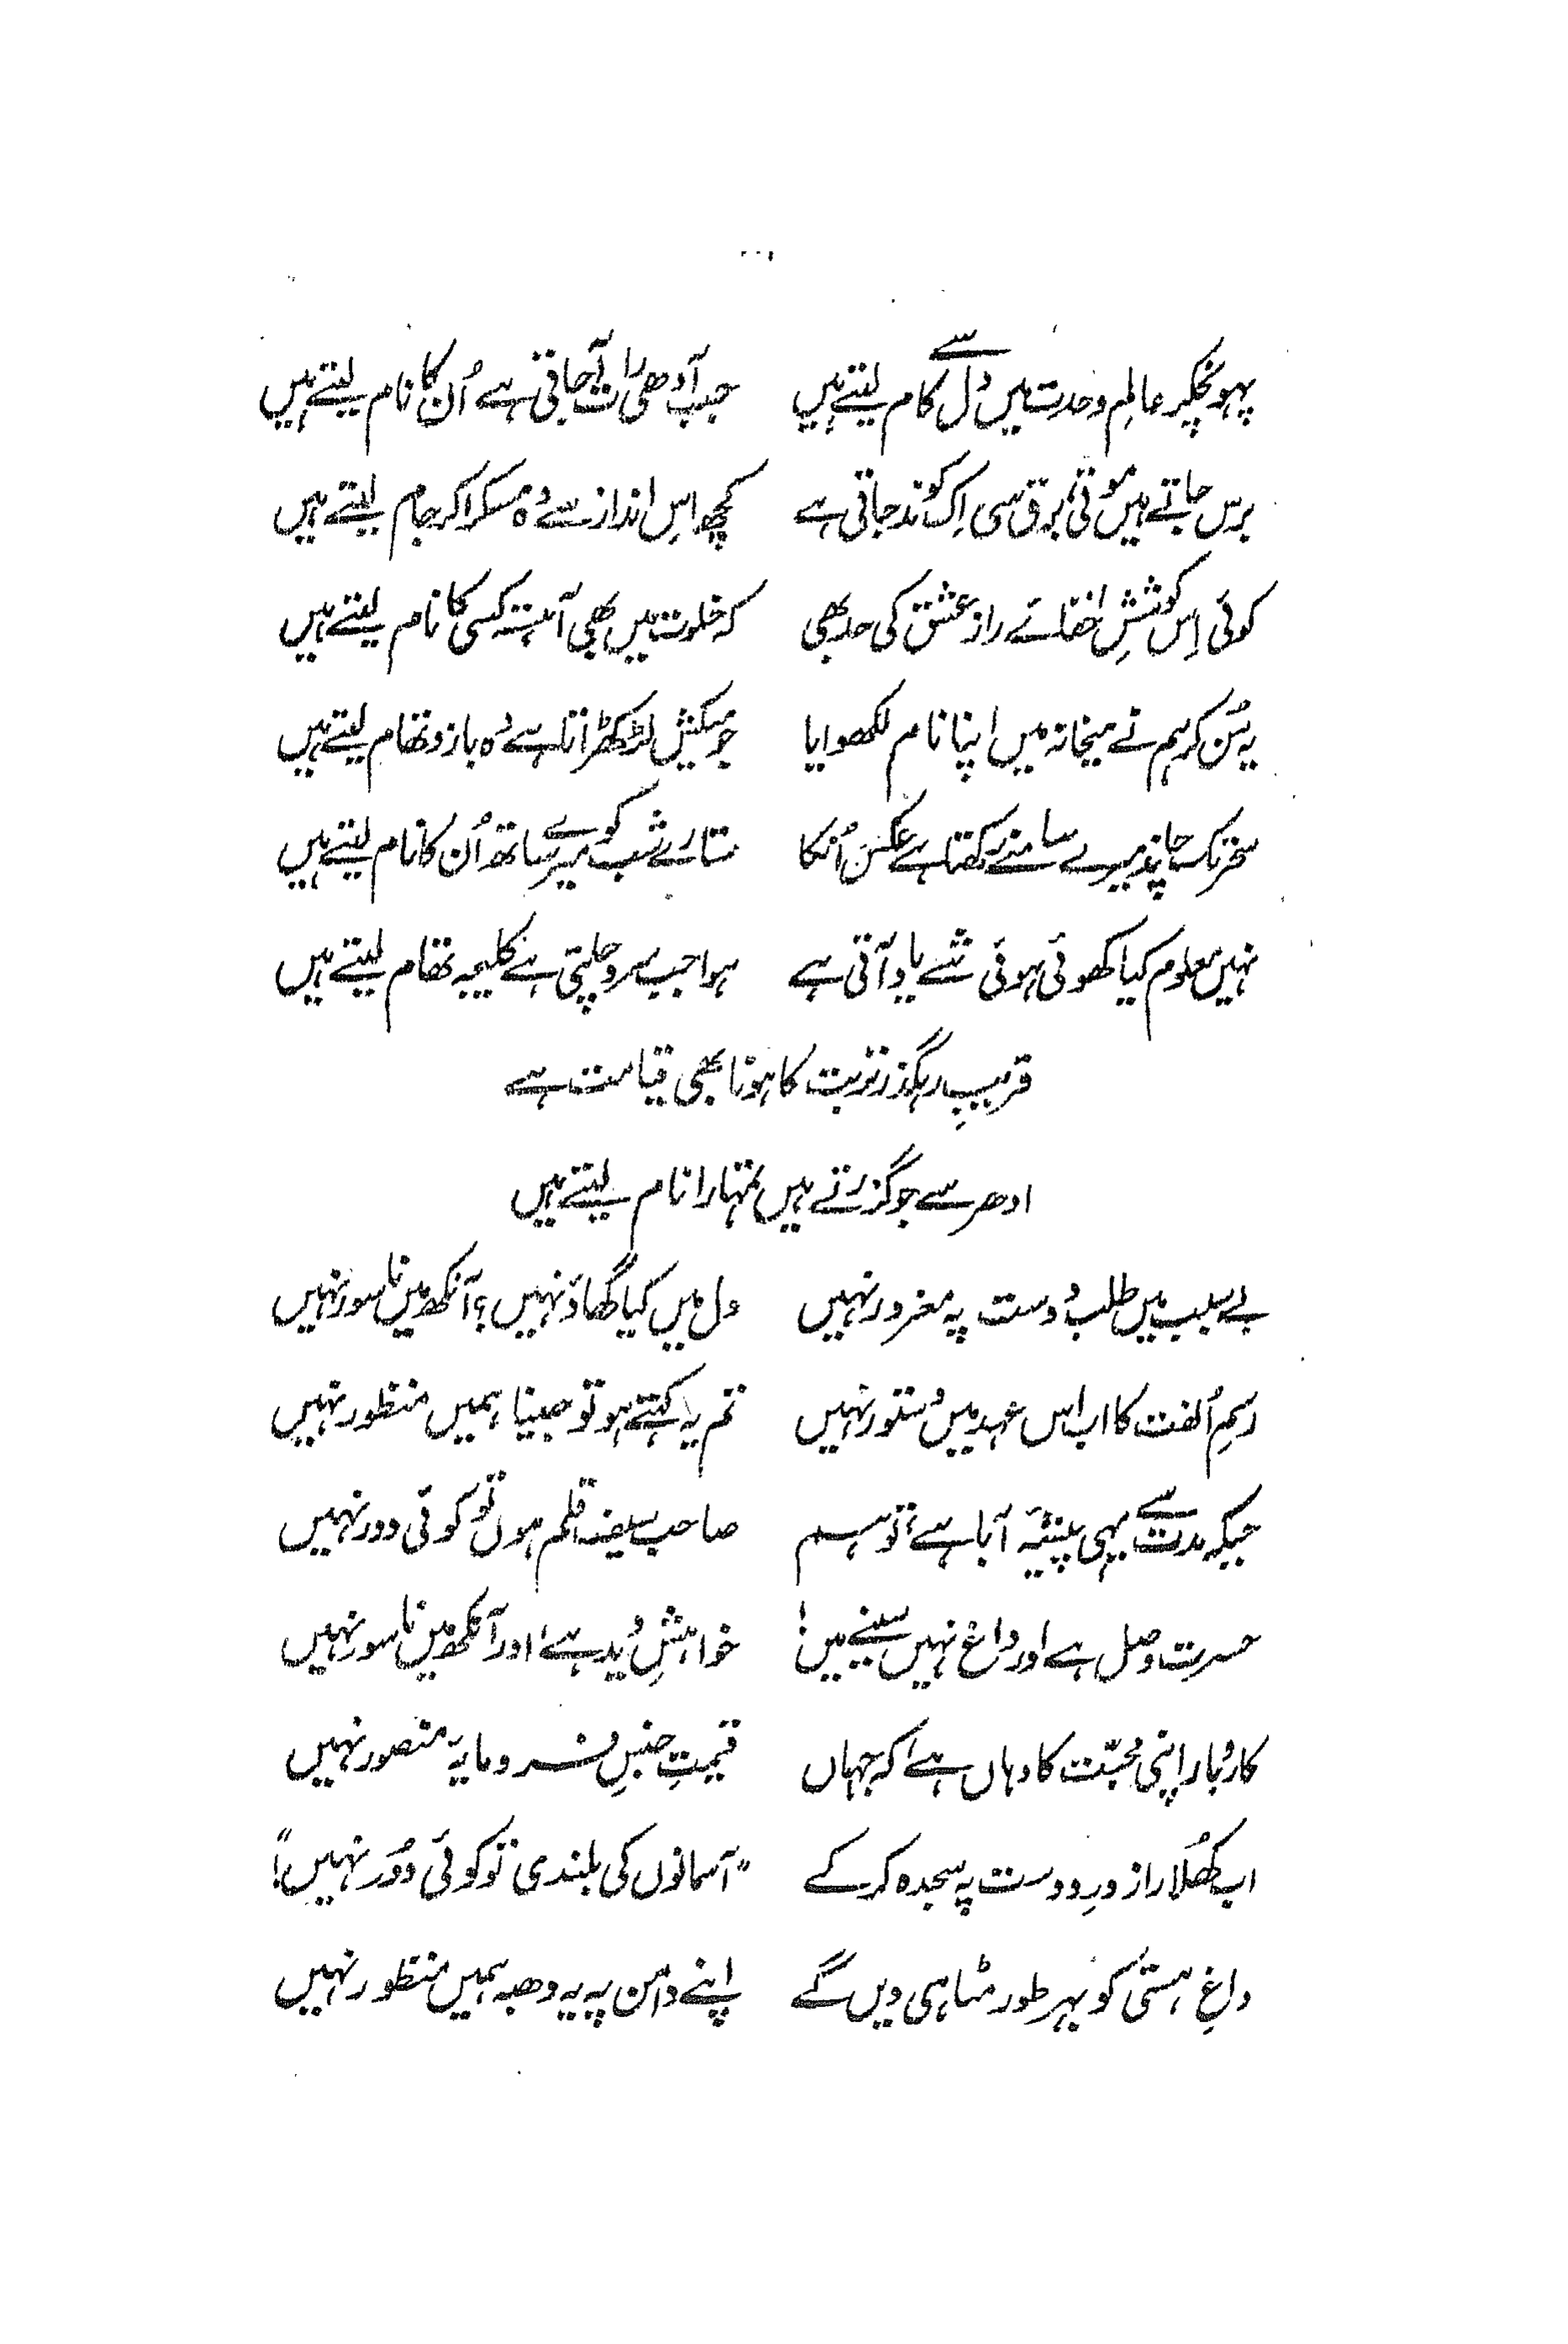 پہونچکر عالمِ وحدت میں دل سے کام لیتے ہیں جب آدھی رات آجاتی ہے اُن کا نام لیتے ہیں
برس جاتے ہیں موتی، برق سی اِک کوند جاتی ہے کچھ اِس انداز سے وُہ مسکرا کر جام لیتے ہیں
کوئی اِس کوششِ اخفائے راز عشق کی حد بھی کہ خلوت میں بھی آہستہ کسی کا نام لیتے ہیں
یہ سُن کر ہم نے میخانہ میں اپنا نام لکھوایا جو میکش لڑکھڑاتا ہے وُہ بازو تھام لیتے ہیں
سحر تک چاند میرے سامنے رکھتا ہے عکس اُنکا ستارے شب کو میرے ساتھ اُن کا نام لیتے ہیں
نہیں معلوم کیا کھوئی ہوئی شے یاد آتی ہے ہوا جب سرد چلتی ہے کلیجہ تھام لیتے ہیں
قریبِ رہگذر تربت کا ہونا بھی قیامت ہے
ادھر سے جو گزرتے ہیں تمہارا نام لیتے ہیں
بے سبب میں طلب دوست پہ مغرور نہیں دل میں کیا گھاؤ نہیں؟ آنکھ میں ناسور نہیں
رسمِ اُلفت کا اب اس عہد میں دُستور نہیں تم یہ کہتے ہو تو جینا ہمیں منظور نہیں
جبکہ مدت سے یہی پیشۂ آبا ہے، تو ہم صاحب سیف و قلم ہوں تو کوئی دور نہیں
حسرت وصل ہے اور داغ نہیں سینے میں! خواہشِ دید ہے، اور آنکھ میں ناسور نہیں
کاروبار اپنی محبّت کا وہاں ہے، کہ جہاں قیمتِ جنسِ فرومایہ منصور نہیں
اب کھُلا راز درِ دوست پہ سجدہ کر کے "آسمانوں کی بلندی تو کوئی دُور نہیں!"
داغِ ہستی کو بہر طور مٹا ہی دیں گے اپنے دامن پہ یہ دھبہ ہمیں منظور نہیں